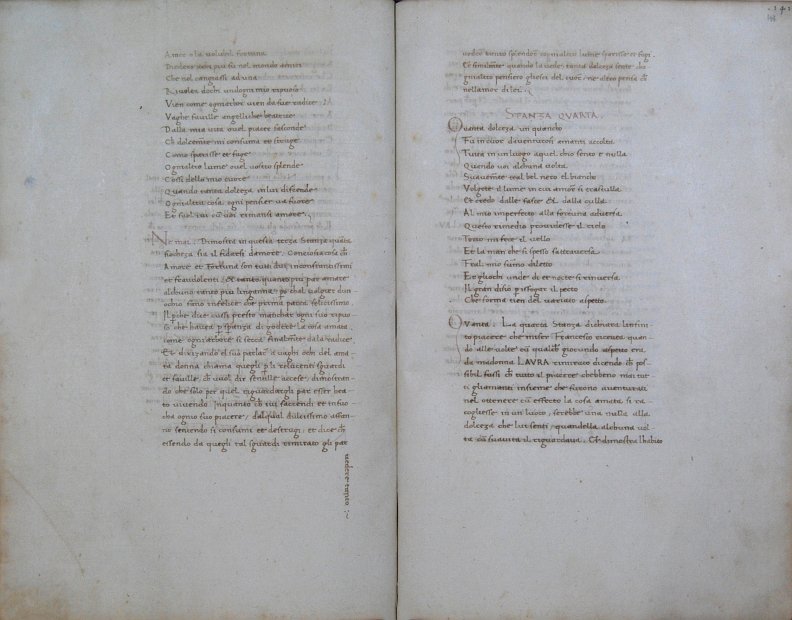 Amor o la volubil fortuna
Diedero achi piu fu nel mondo amici
Che nol cangiasse ad una
Rivolta dochi undogni mio riposo
Vien come ogniarbor vien da sue radice
Vaghe faville angelliche beatrice
Dalla mia vita ovel piacer sasconde
Ch dolcemte mi consuma et struge
Come sparisse et fuge
Ognialtro lume ovel vostro splende
Cossi dello mio cuore
Quando tanta dolceza in lui discende
Ognialtra cosa ogni penser va fuore
Et sol ivi cu voi rimansi amore
Ne mai. Dimostra in questa terza Stanza quata
siocheza sia il fidarsi damore. Conciosia cosa ch
Amore et Fortuna son tutti dui inconstantissimi
et fraudolenti. Et tanto quanto piu par amare
alchuno tanto piu linganna. po chal volger dun
ochio sano infelice che prima parea felicissimo.
Il che due cussi presto manchar ogni suo ripo
so che havea p speranza di godere la cosa amata,
come ogniarbore si secca finalmte dala radice.
Et drizando el suo parlar a vaghi ochi del ama
ta donna chiama quegli p li relucenti sguardi
et faville, ch vuol dir scintille accese, dimostran
do che solo per quel riguardargli par esser bea
to vivendo. Inquanto ch ivi faccendi et infuo
cha ogni suo piacere, dal qual dulcissimo assen
tio sentendo si consumi et destrugi. et dice ch
essendo da quegli tal sguardi rimirato gli par
vedere tanto
141
vedere tanto splendore cogni altro lume sparisse et fugi.
Et similmte quando la vede tanta dolceza sente ch
gni altro pensiero gliesci del cuore, ne altro pensa ch
nellamor di lei.
STANZA QVARTA.
Quanta dolceza un quancho
Fu in cuor daventurosi amanti accolta
Tutta in un luogo a quel chio sento e nulla
Quando voi alchuna volta
Suavemte tral bel nero el biancho
Volgete il lume in cui amor si trastulla
Et credo dalle fasce et la culla
Al mio imperfecto alla fortuna adversa
Questo rimedio providesse il cielo
Torto mi face il vello
Et la man che si spesso sattraversa
Fral mio sumo diletto
Et gliochi unde di et notte si rinversa
Il gran disio p isfogar il petto
Che forma tien del variato aspetto.
Quanta. La quarta Stanza dichiara linfini
to piacere che miser Francesco riceveva quan
do alle volte cu qualch giocundo aspetto era
da madonna LAVRA rimirato dicendo ch pos
sibil fussi ch tutto il piacere chebbeno mai tut
ti gliamanti insieme che furono aventurati
nel ottenere cu effecto la cosa amata, si ra
cogliesse in un luoco, serebbe una nulla alla
dolceza che lui senti, quandella alchuna vol
ta cu suavita il riguardava. Ch dimostra lhabito